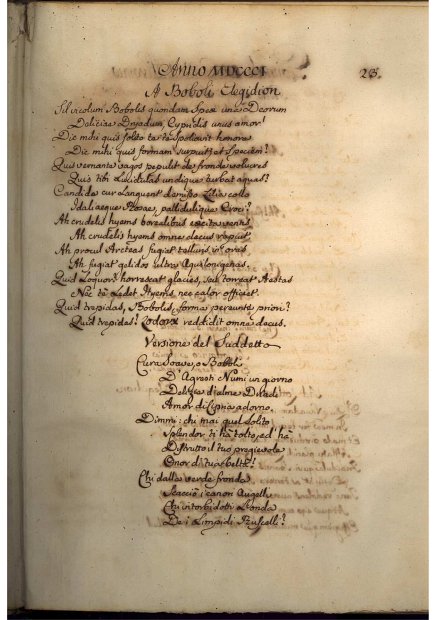 Anno MDCCCI
23.
A Boboli Elegidion
Silvicolum Bobolis quondam Spes una Deorum
Delitiæ Dryadum, Cypridis unus amor!
Dic mihi quis solito te spoliavit honore
Dic mihi quis formam surpuit, et speciem?
Quis vernante vagos pepulit de fronde volucres
Quis tibi Lucidulas undique turbat aquas?
Candida cur Languent demisso Lilia collo
Idaliæque Rosae, pallidulique Croci?
Ah crudelis hyems borealibus excita ventis
Ah crudelis hyems omne decus rapuit
Ah procul Arcteas fugiat telluris in oras
Ah fugiat gelidos ultra Aquilonigenas.
Quid Loquor? horrescat glacies, seu torreat Aestas
Nec te Ledet Hyems nec calor officiet.
Quid trepidas, o Bobolis, forma pereunte priori?
Quid trepides? reddidit omne decus.
Versione del Suddetto
Cura Soave, o Boboli
D'Agresti Numi un giorno
Delizia d'alme Driadi
Amor di Ciprio adorno,
Dimmi: chi mai quel solito
Splendor ti ha tolto, ed ha
Distrutto il tuo pregievole
Onor di tua beltà?
Chi dalla verde fronda
Scacciò i canori Augelli
Chi intorbidò l'onda
De i Limpidi Ruscelli?